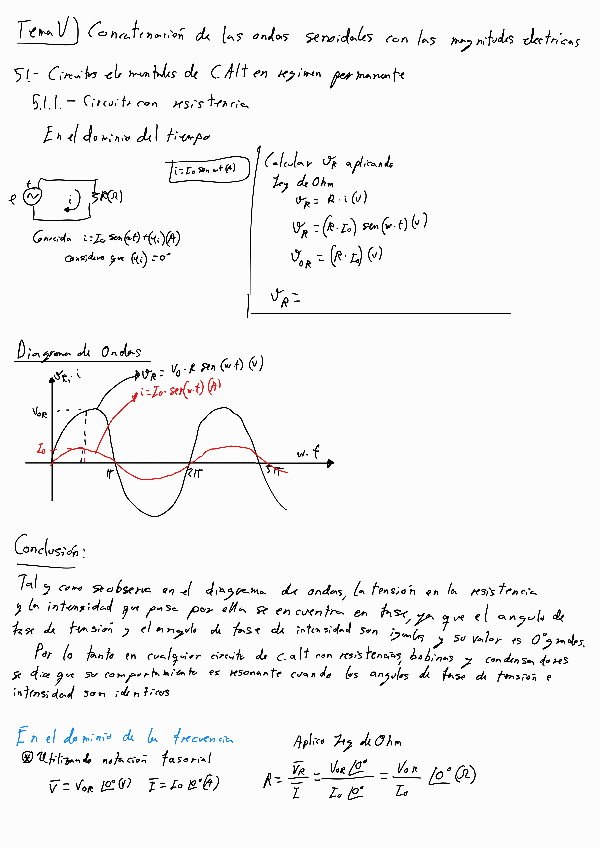 Tema V) Concatenación de las ondas senoidales con las magnitudes electricas
5.1.- Circuitos elementales de C.Alt en regimen permanente
5.1.1.- Circuito con resistencia
En el dominio del tiempo
i=I₀ sen wt (A)
e
i
R(Ω)
Conocida i=I₀ sen(wt)+(φi)(A)
considero que (φi)=0°
Calcular VR aplicando
Ley de Ohm
VR = R·i(V)
VR = (R·I₀) sen(w·t)(V)
V₀R = (R·I₀)(V)
VR =
Diagrama de Ondas
VR, i
VR = V₀·R sen(w·t)(V)
i=I₀·sen(w·t)(A)
V₀R
I₀
π
2π
3π
w.t
Conclusión:
Tal y como se observa en el diagrama de ondas, la tensión en la resistencia
y la intensidad que pasa por ella se encuentra en fase, ya que el angulo de
fase de tensión y el angulo de fase de intensidad son iguales y su valor es 0° grados.
Por lo tanto en cualquier circuito de c.alt con resistencias, bobinas y condensadores
se dice que su comportamiento es resonante cuando los angulos de fase de tensión e
intensidad son identicos
En el dominio de la frecuencia
Utilizando notación fasorial
V̅ = V₀R |0° (V) I̅ = I₀ |0° (A)
Aplico Ley de Ohm
R = V̅R / I̅ = V₀R |0° / I₀ |0° = V₀R / I₀ |0° (Ω)